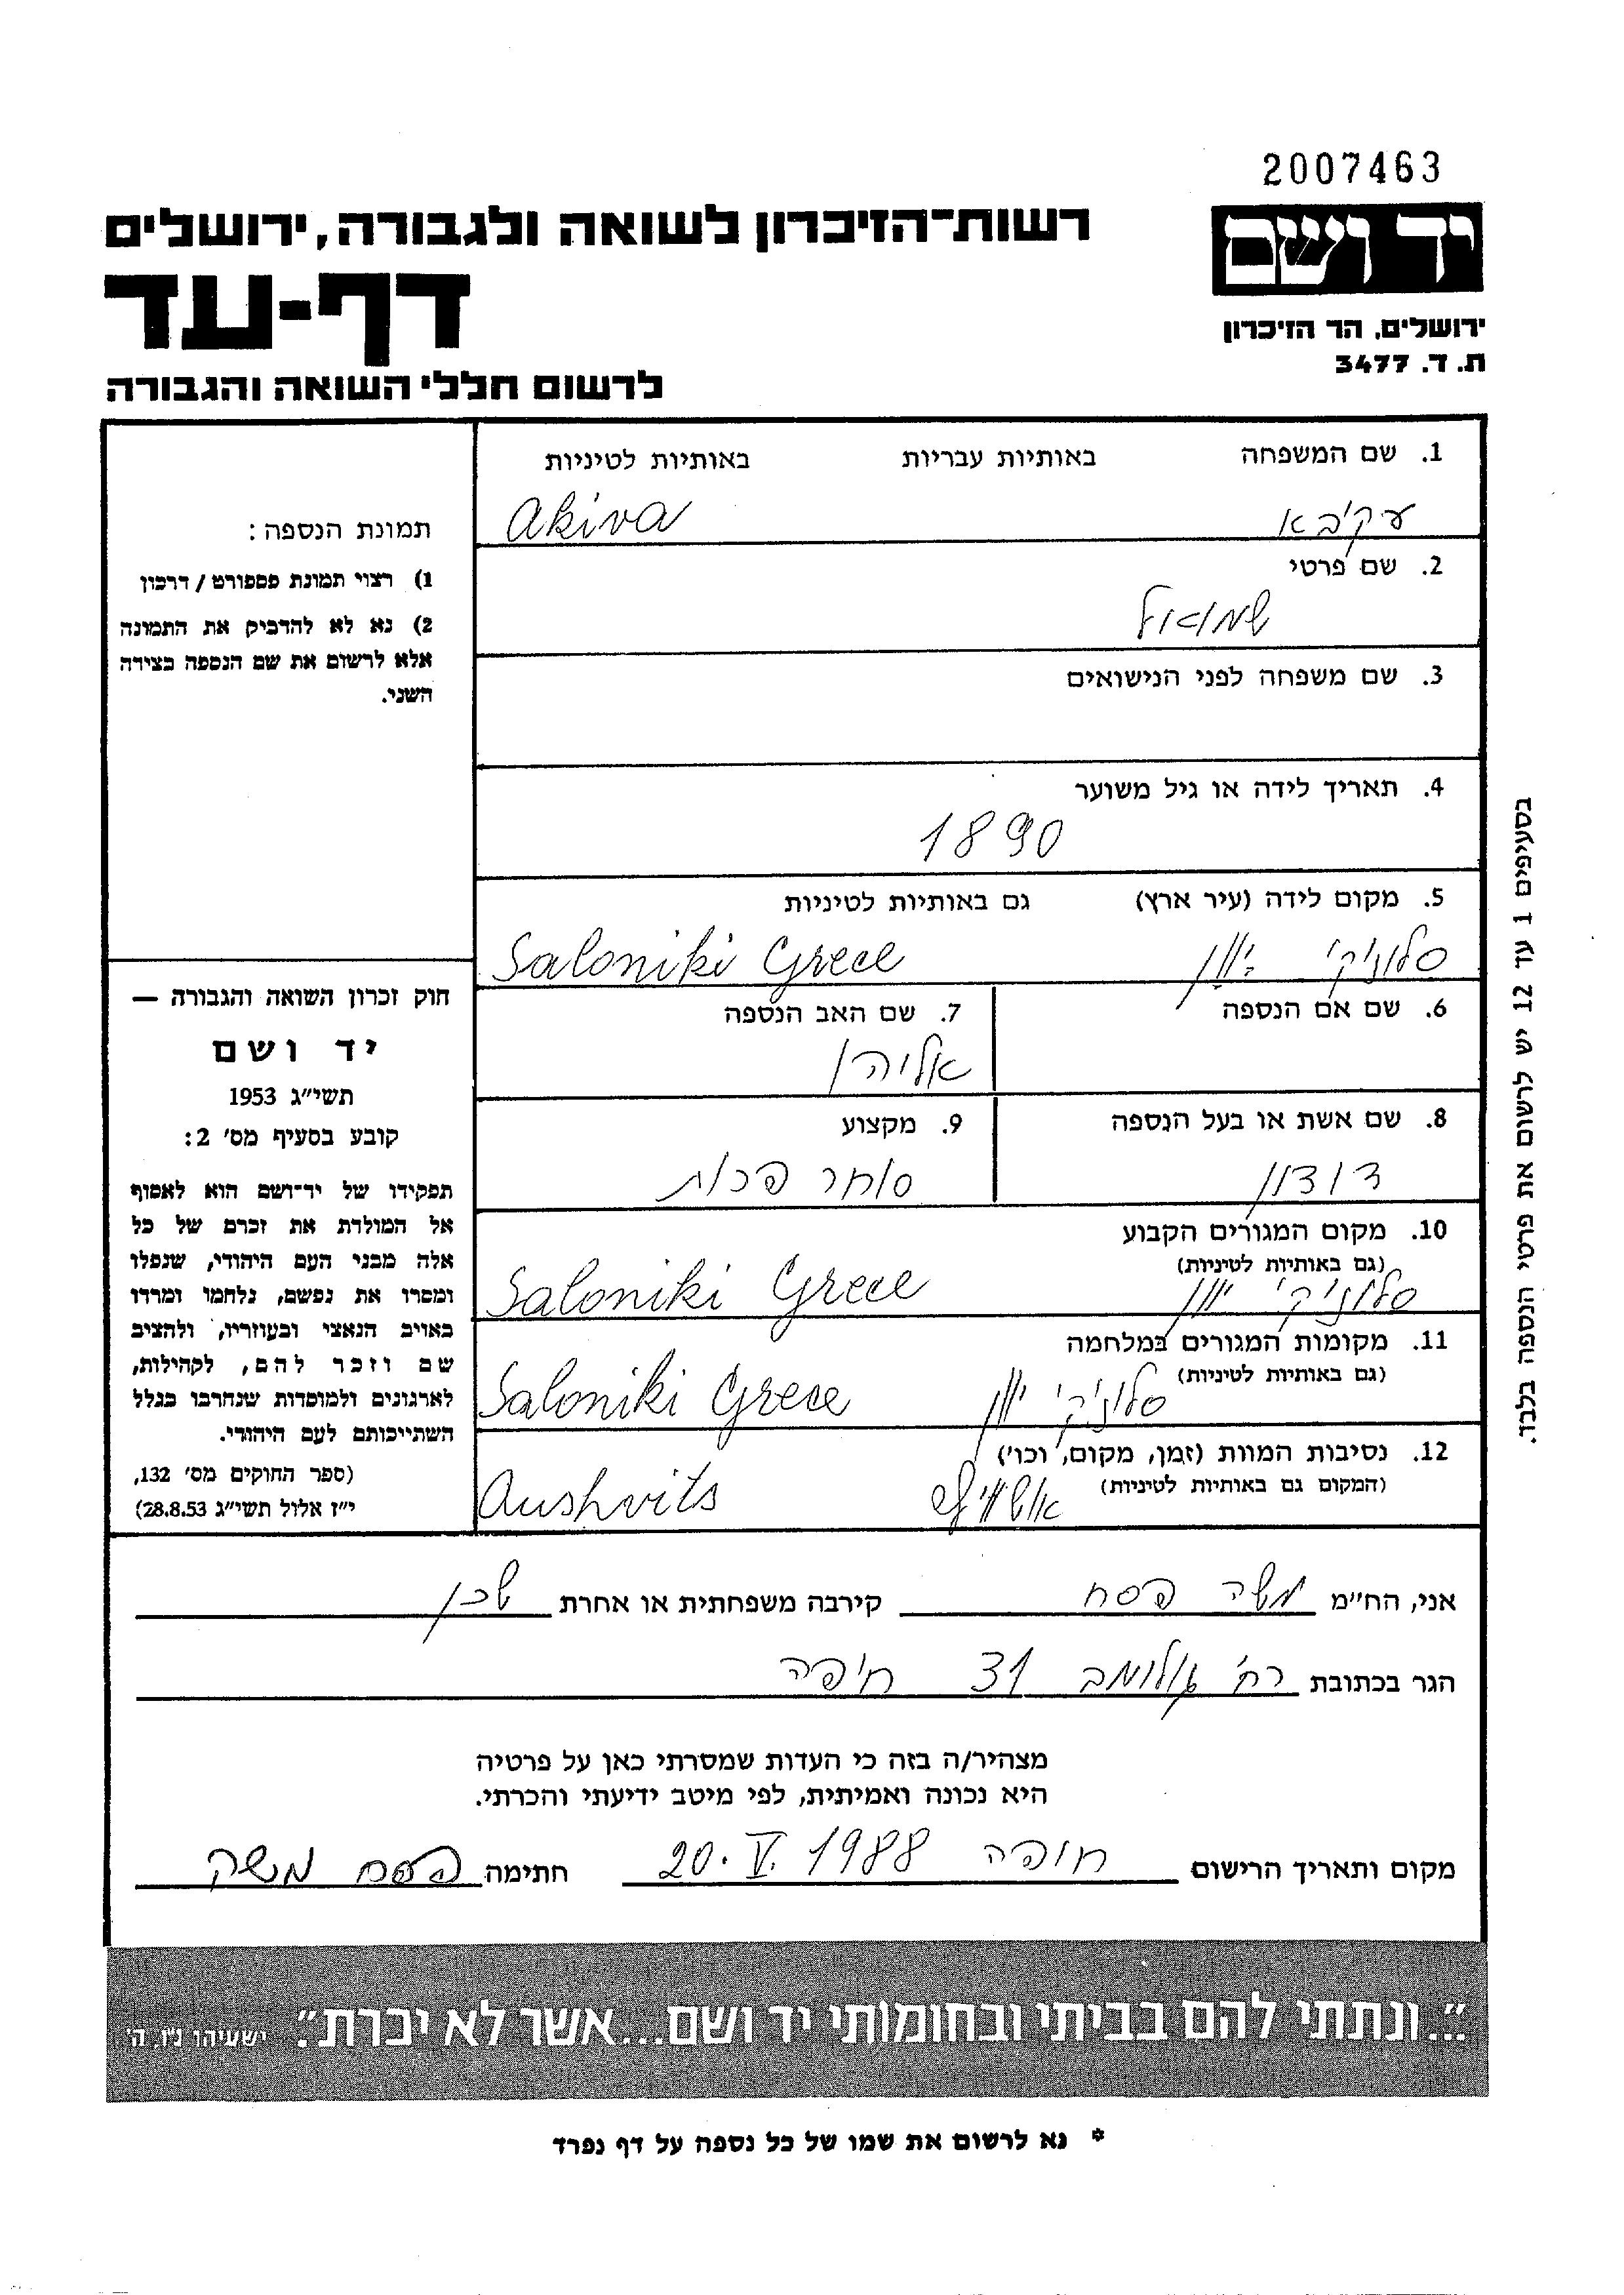 2007463
יד ושם
ירושלים, הר הזיכרון
ת. ד. 3477
רשות-הזיכרון לשואה ולגבורה, ירושלים
דף-עד
לרשום חללי השואה והגבורה
1. שם המשפחה באותיות עבריות באותיות לטיניות
עקיבא Akiva
2. שם פרטי
שמואל
3. שם משפחה לפני הנישואים
4. תאריך לידה או גיל משוער
1890
5. מקום לידה (עיר ארץ) גם באותיות לטיניות
סלוניקי יוון Saloniki Grece
6. שם אם הנספה
7. שם האב הנספה
אליהו
8. שם אשת או בעל הנספה
דודון
9. מקצוע
סוחר פרות
10. מקום המגורים הקבוע
(גם באותיות לטיניות)
סלוניקי יוון Saloniki Grece
11. מקומות המגורים במלחמה
(גם באותיות לטיניות)
סלוניקי יוון Saloniki Grece
12. נסיבות המוות (זמן, מקום, וכו')
(המקום גם באותיות לטיניות)
אושוויץ Aushvits
תמונת הנספה:
1) רצוי תמונת פספורט / דרכון
2) נא לא להדביק את התמונה
אלא לרשום את שם הנספה בצידה
השני.
חוק זכרון השואה והגבורה —
יד ושם
תשי"ג 1953
קובע בסעיף מס' 2:
תפקידו של יד-ושם הוא לאסוף
אל המולדת את זכרם של כל
אלה מבני העם היהודי, שנפלו
ומסרו את נפשם, נלחמו ומרדו
באויב הנאצי ובעוזריו, ולהציב
שם וזכר להם, לקהילות,
לארגונים ולמוסדות שנחרבו בגלל
השתייכותם לעם היהודי.
(ספר החוקים מס' 132,
י"ז אלול תשי"ג 28.8.53)
בסעיפים 1 עד 12 יש לרשום את פרטי הנספה בלבד.
אני, הח"מ משה פסח קירבה משפחתית או אחרת שכן
הגר בכתובת רח' גולומב 31 חיפה
מצהיר/ה בזה כי העדות שמסרתי כאן על פרטיה
היא נכונה ואמיתית, לפי מיטב ידיעתי והכרתי.
מקום ותאריך הרישום חיפה 20. V. 1988 חתימה פסח משה
"...ונתתי להם בביתי ובחומותי יד ושם...אשר לא יכרת". ישעיהו נ"ו, ה'
* נא לרשום את שמו של כל נספה על דף נפרד